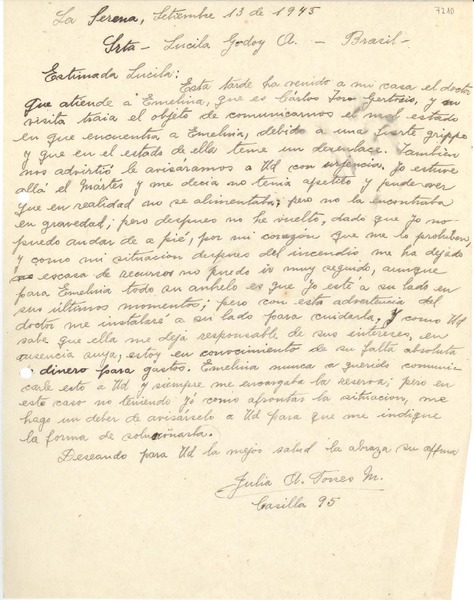 7210
La Serena, Setiembre 13 de 1945
Srta - Lucila Godoy A. - Brasil -
Estimada Lucila:
Esta tarde ha venido a mi casa el doctor
que atiende á Emelina, que es Cárlos Toro Gertosio, y su
visita traia el objeto de comunicarnos el mal estado
en que encuentra a Emelina, debido a una fuerte grippe
y que en el estado de ella teme un desenlace. Tambien
nos advirtió le avisáramos a Ud con urjencia. Yo estuve
allá el Mártes y me decia no tenia apetito y pude ver
que en realidad no se alimentaba; pero no la encontraba
en gravedad; pero despues no he vuelto, dado que yo no
puedo andar de a pié, por mi corazón que me lo prohiben,
y como mi situacion despues del incendio me ha dejado
escasa de recursos no puedo ir muy seguido, aunque
para Emelina todo su anhelo es que yo esté a su lado en
sus últimos momentos; pero con esta advertencia del
doctor me instalaré a su lado para cuidarla, y como Ud
sabe que ella me deja responsable de sus intereses, en
ausencia suya, estoy en conocimiento de su falta absoluta
dinero para gastos. Emelina nunca a querido comuni-
carle esto a Ud y siempre me encargaba la reserva; pero en
este caso no teniendo yó como afrontar la situacion, me
hago un deber de avisárselo a Ud para que me indique
la forma de solucionarla.
Deseando para Ud la mejor salud la abraza su affma
Julia A. Torres M.
Casilla 95